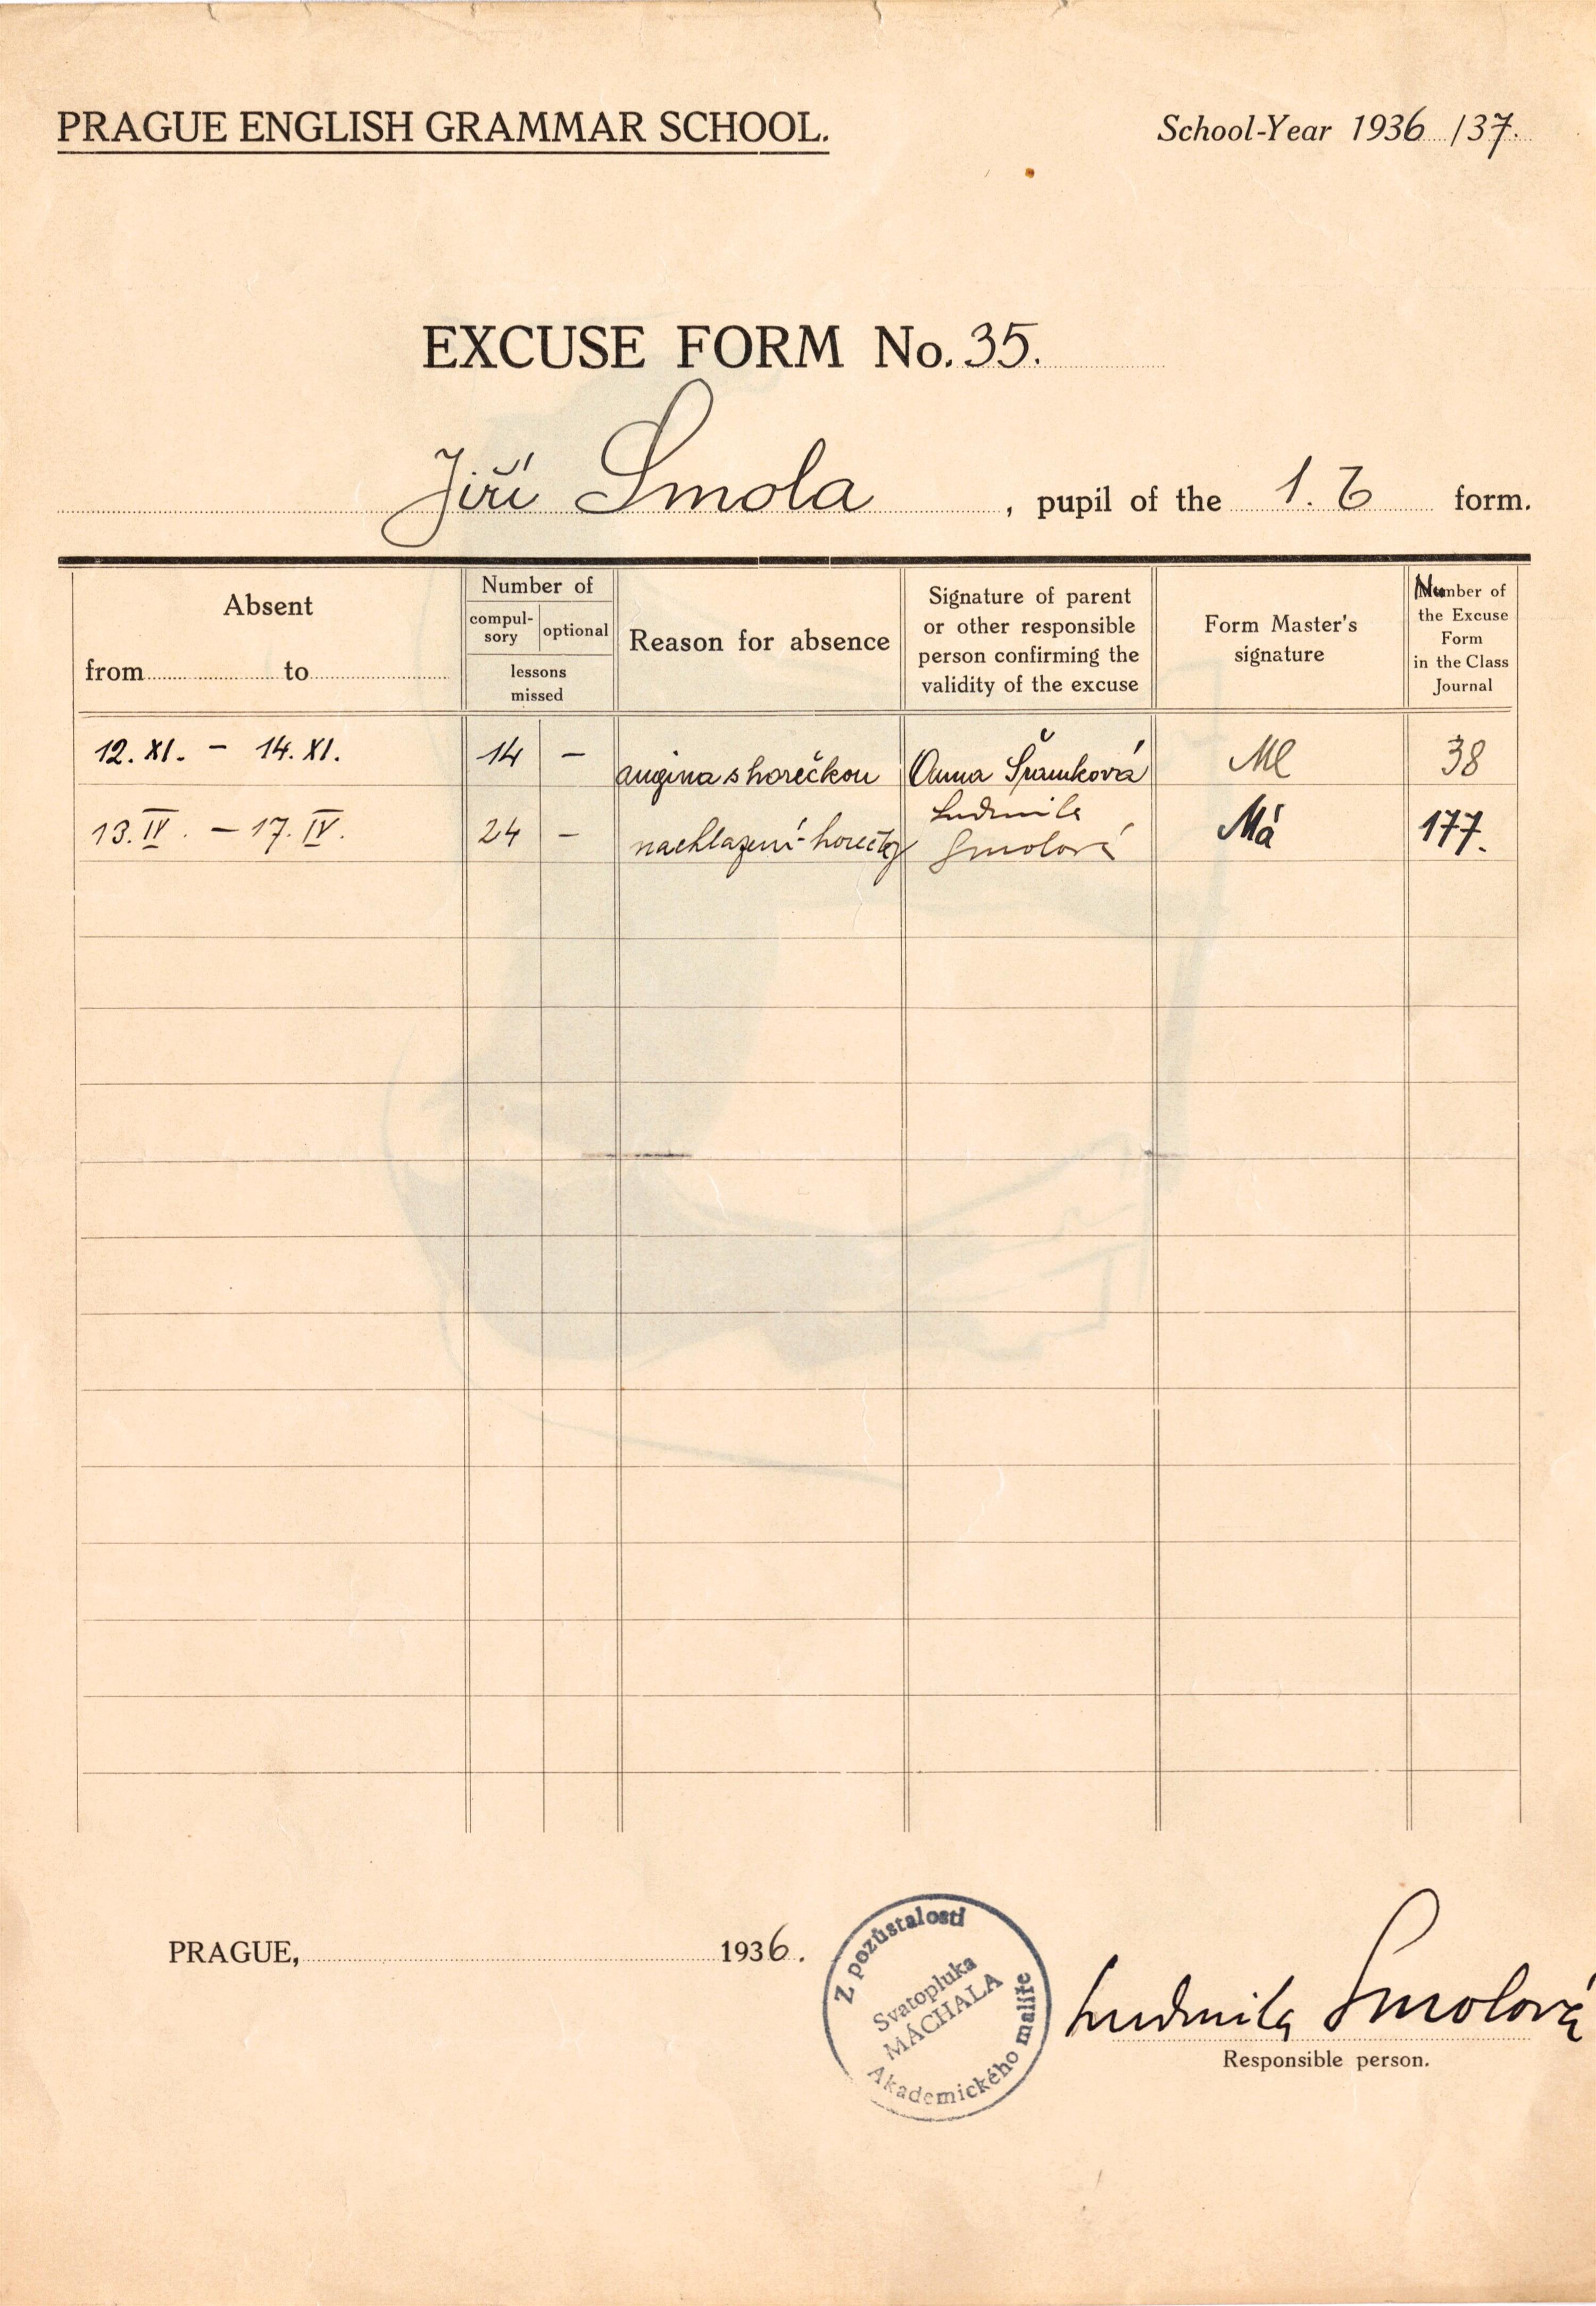 PRAGUE ENGLISH GRAMMAR SCHOOL.
School-Year 1936/37.
EXCUSE FORM No. 35.
Jiří Smola, pupil of the 1. form.
Absent
from to
Number of
compul-
sory
optional
lessons
missed
Reason for absence
Signature of parent
or other responsible
person confirming the
validity of the excuse
Form Master's
signature
Number of
the Excuse
Form
in the Class
Journal
12. XI. - 14. XI. 14 - angina s horečkou Anna Šrámková 38
13. IV. - 17. IV. 24 - nachlazení - horečky Ludmila Smolová Má 177.
PRAGUE, 1936.
Z pozůstalosti
Svatopluka
MÁCHALA
Akademického malíře
Ludmila Smolová
Responsible person.